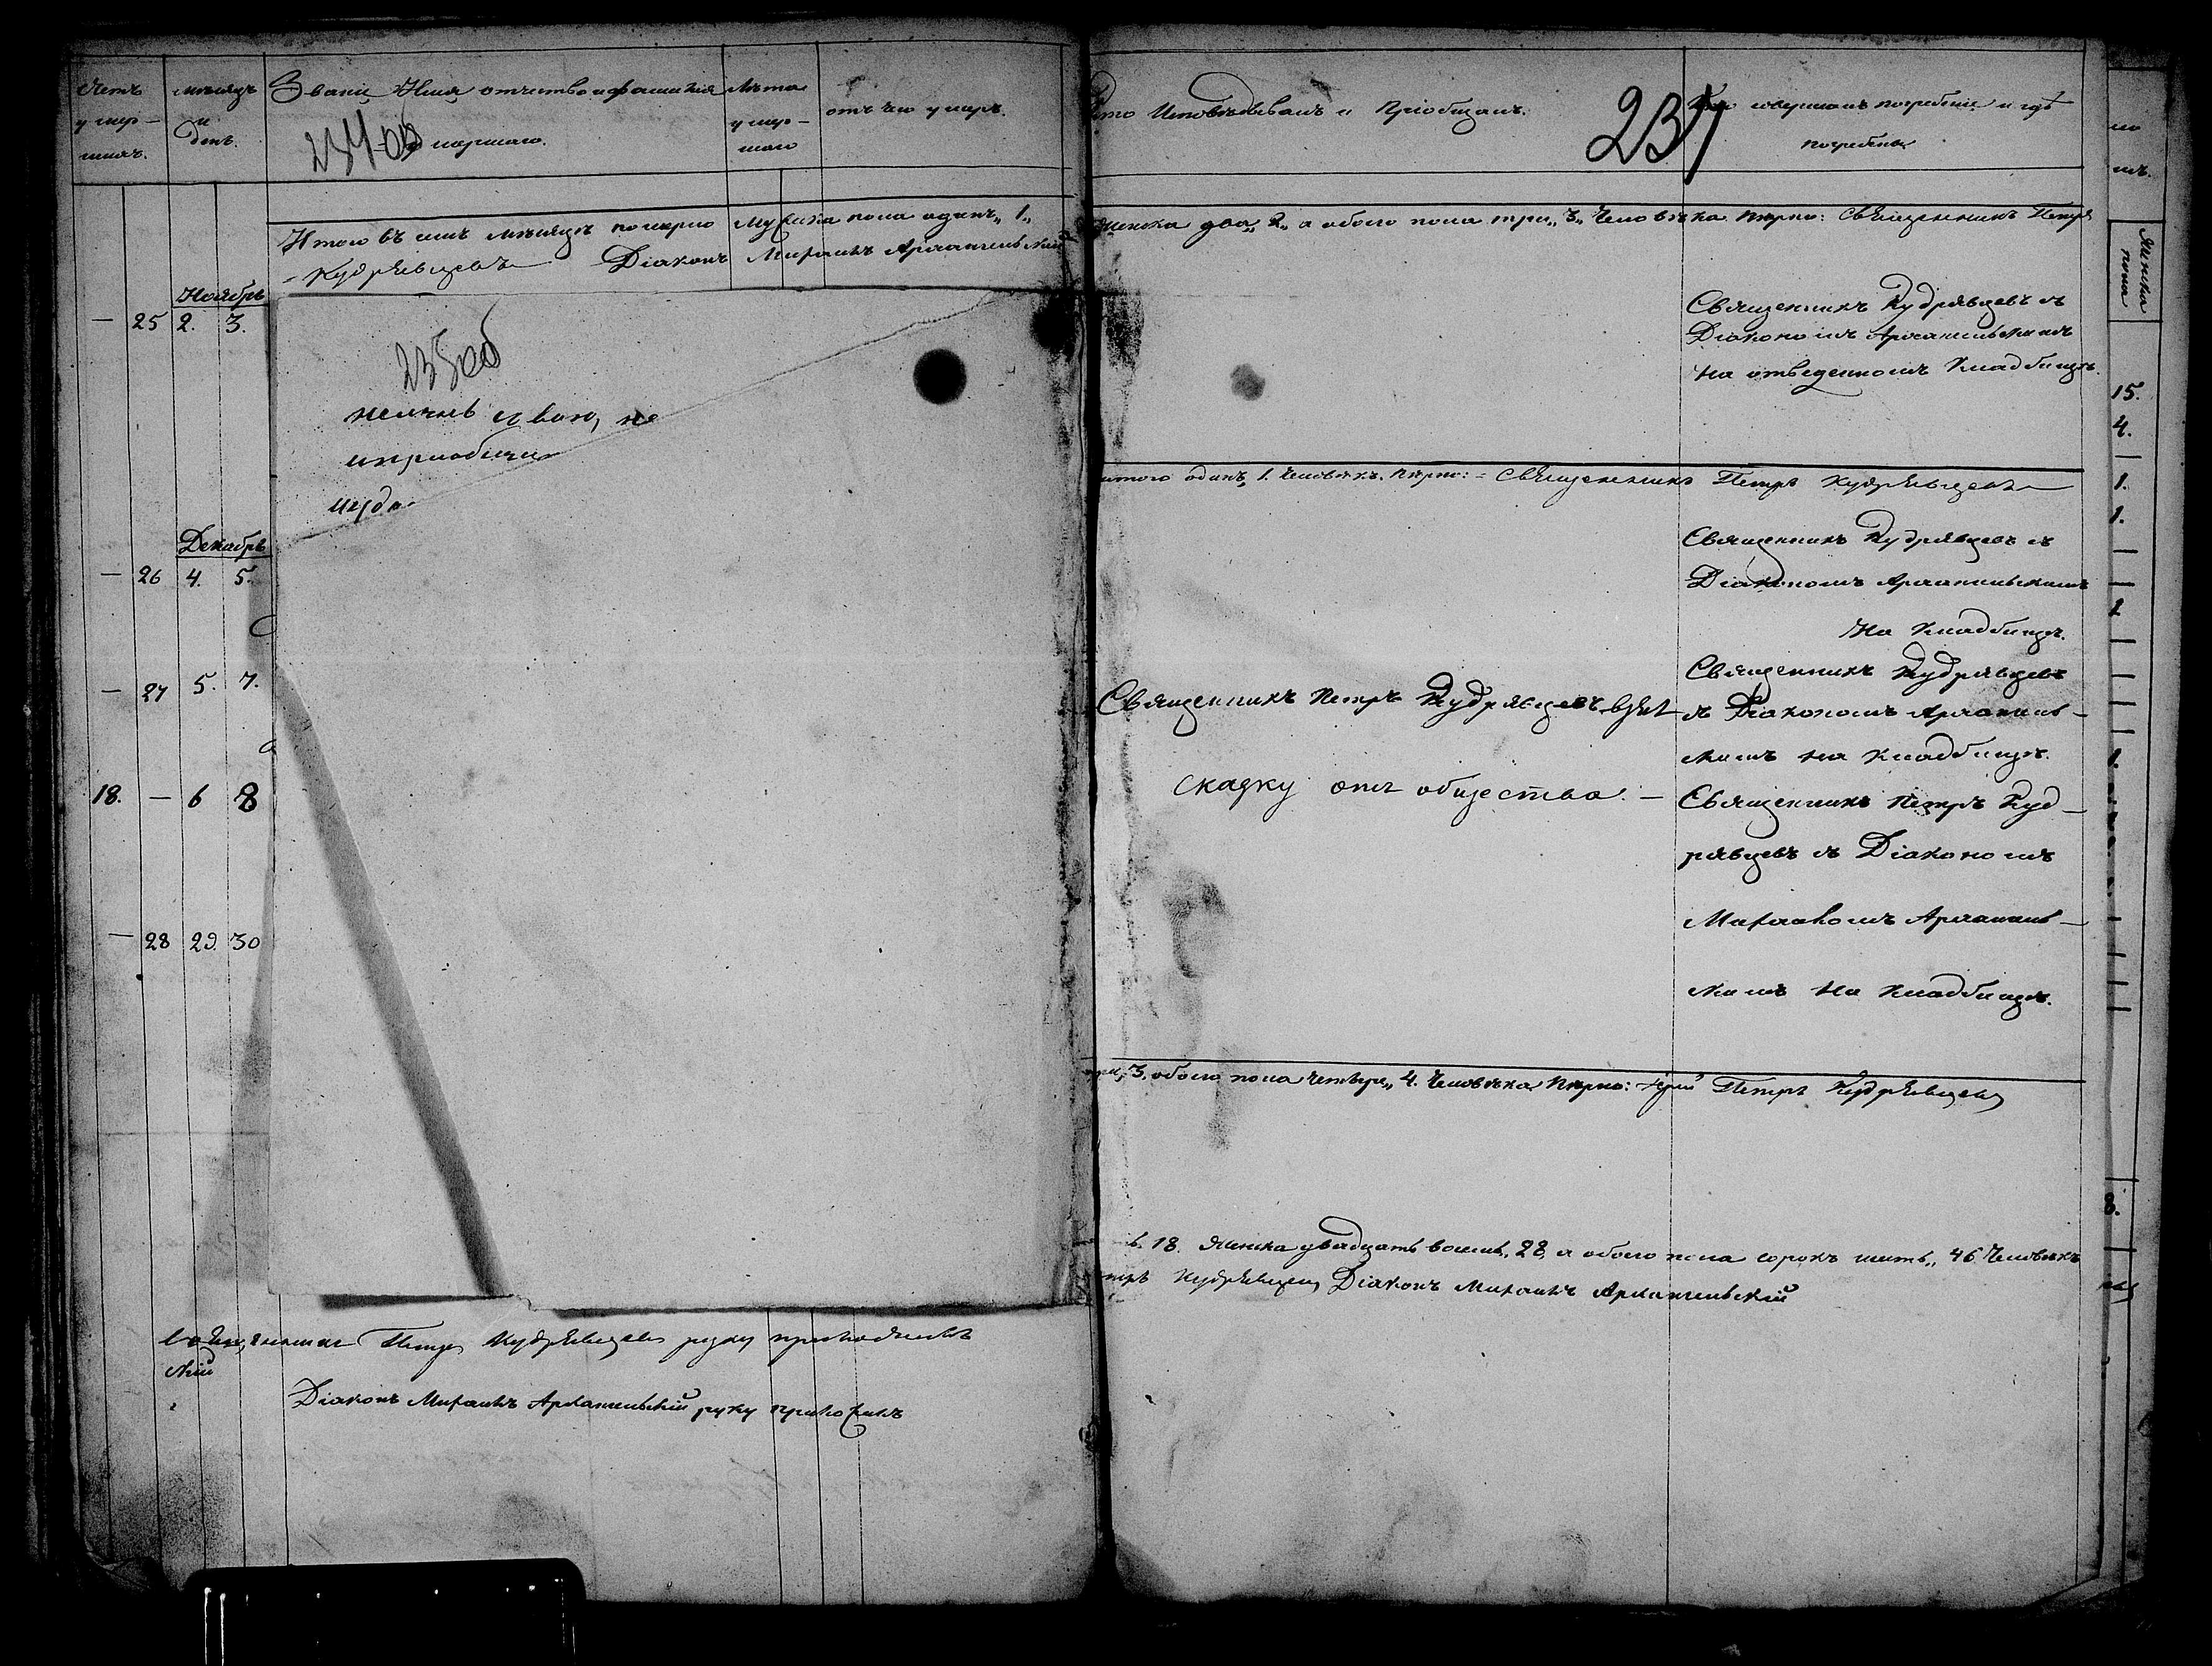 Счетъ умершихъ.
мѣсяцъ и день.
Званіе Имя отчество и фамилія умершаго.
Лѣта умершаго
отъ чего умеръ.
Кто Исповѣдывалъ и Пріобщалъ.
Кто совершалъ погребеніе и гдѣ погребены
234 об
237
Итого въ семъ мѣсяцѣ померло Мужеска пола одинъ „1„ Женска два „2„ а обоего пола три „3„ Человѣка Вѣрно: Священникъ Петръ
Кудрявцевъ Діаконъ Михаилъ Архангельскій
Ноябрь
— 25 2. 3.
Священникъ Кудрявцевъ съ
Діакономъ Архангельскимъ
на отведенномъ Кладбищѣ.
235 об
итого одинъ „1. Человѣкъ. Вѣрно: Священникъ Петръ Кудрявцевъ
Декабрь
— 26 4. 5.
Священникъ Кудрявцевъ съ
Діакономъ Архангельскимъ
На Кладбищѣ.
— 27 5. 7.
Священникъ Кудрявцевъ
съ Діакономъ Архангель-
скимъ на Кладбищѣ.
Священникъ Петръ Кудрявцевъ
отъ общества. —
18. — 6 8
Священникъ Петръ Куд-
рявцевъ съ Діакономъ
Михаиломъ Архангель-
скимъ на Кладбищѣ.
— 28 29. 30
3. обоего пола Четыре „4. Человѣка Вѣрно: Іерей Петръ Кудрявцевъ
18. Женска двадцать восемь „28, а обоего пола сорокъ шесть „46 Человѣкъ
Кудрявцевъ Діаконъ Михаилъ Архангельскій
Петръ Кудрявцевъ руку приложилъ
Діаконъ Михаилъ Архангельскій руку приложилъ
Женска пола
15.
4.
1.
1.
1.
8.